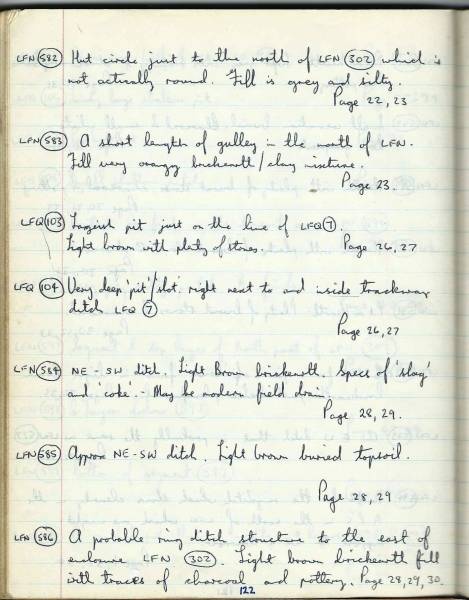 LFN 582 Hut circle just to the north of LFN 302 which is
not actually round. Fill is grey and silty.
Page 22, 23
LFN 583 A short length of gulley in the north of LFN.
Fill very orangy brickearth/clay mixture.
Page 23.
LFQ 103 Largeish pit just on the line of LFQ 7.
Light brown with plenty of stones. Page 26, 27
LFQ 104 Very deep 'pit'/slot. right next to and inside trackway
ditch LFQ 7
Page 26, 27
LFN 584 NE - SW ditch. Light Brown brickearth. Specs of 'slag'
and 'coke'. May be modern field drain.
Page 28, 29.
LFN 585 Approx NE-SW ditch. Light brown buried topsoil.
Page 28, 29
LFN 586 A probable ring ditch structure to the east of
enclosure LFN 302. Light brown brickearth fill
with traces of charcoal and pottery. Page 28, 29, 30.
122